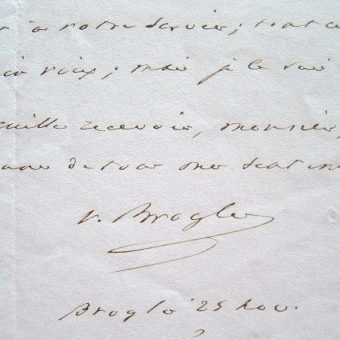 à votre service; tout ce
vieux; mais je le suis
veuille recevoir, monsieur,
de tous mes sentim
V. Broglie
Broglie 25 nov.